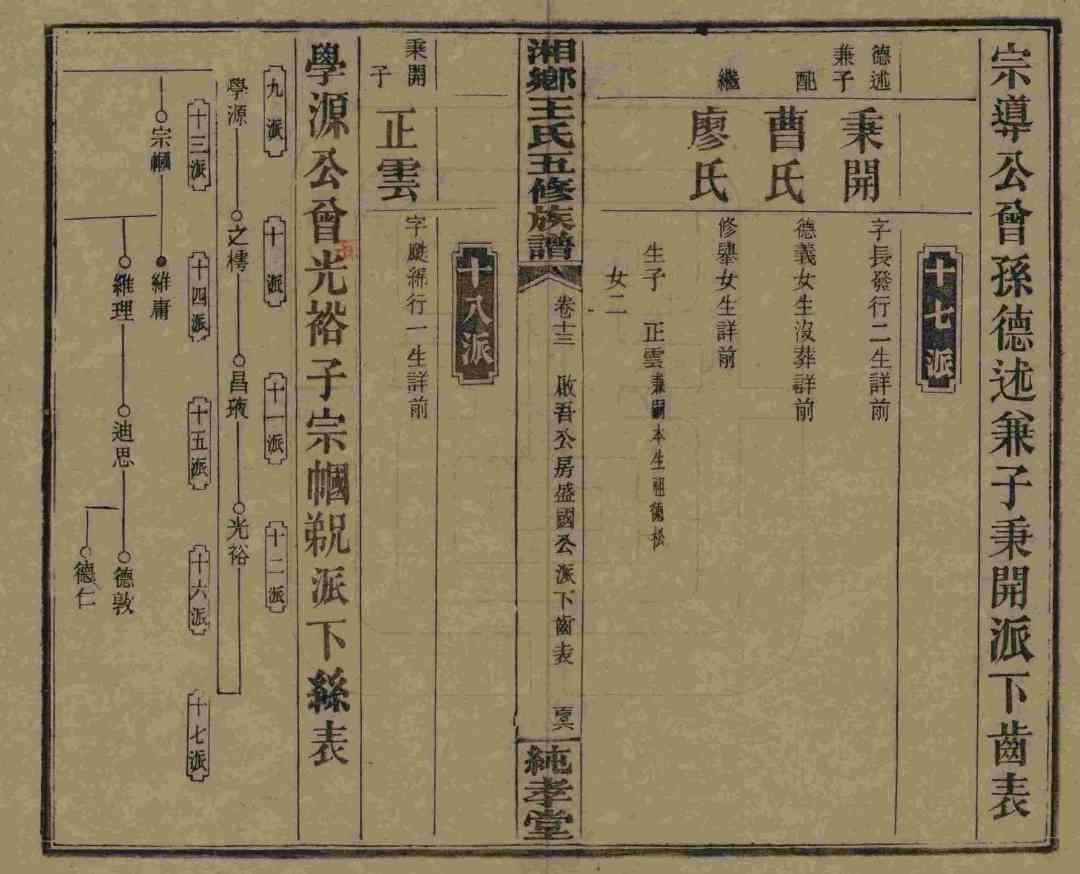 宗導公曾孫德述兼子秉開派下齒表
十七派
德述
兼子
秉開
字長發行二生詳前
配
曹氏
德義女生沒葬詳前
繼
廖氏
修舉女生詳前
生子 正雲兼嗣本生祖德松
女二
湘鄉王氏五修族譜
卷十三 啟吾公房盛國公派下齒表
純孝堂
十八派
秉開
子
正雲
字行一生詳前
學源公曾光裕子宗幗派下絲表
九派
十派
十一派
十二派
學源
之樗
昌掖
光裕
十三派
十四派
十五派
十六派
十七派
宗幗
維庸
維理
迪思
德敦
德仁